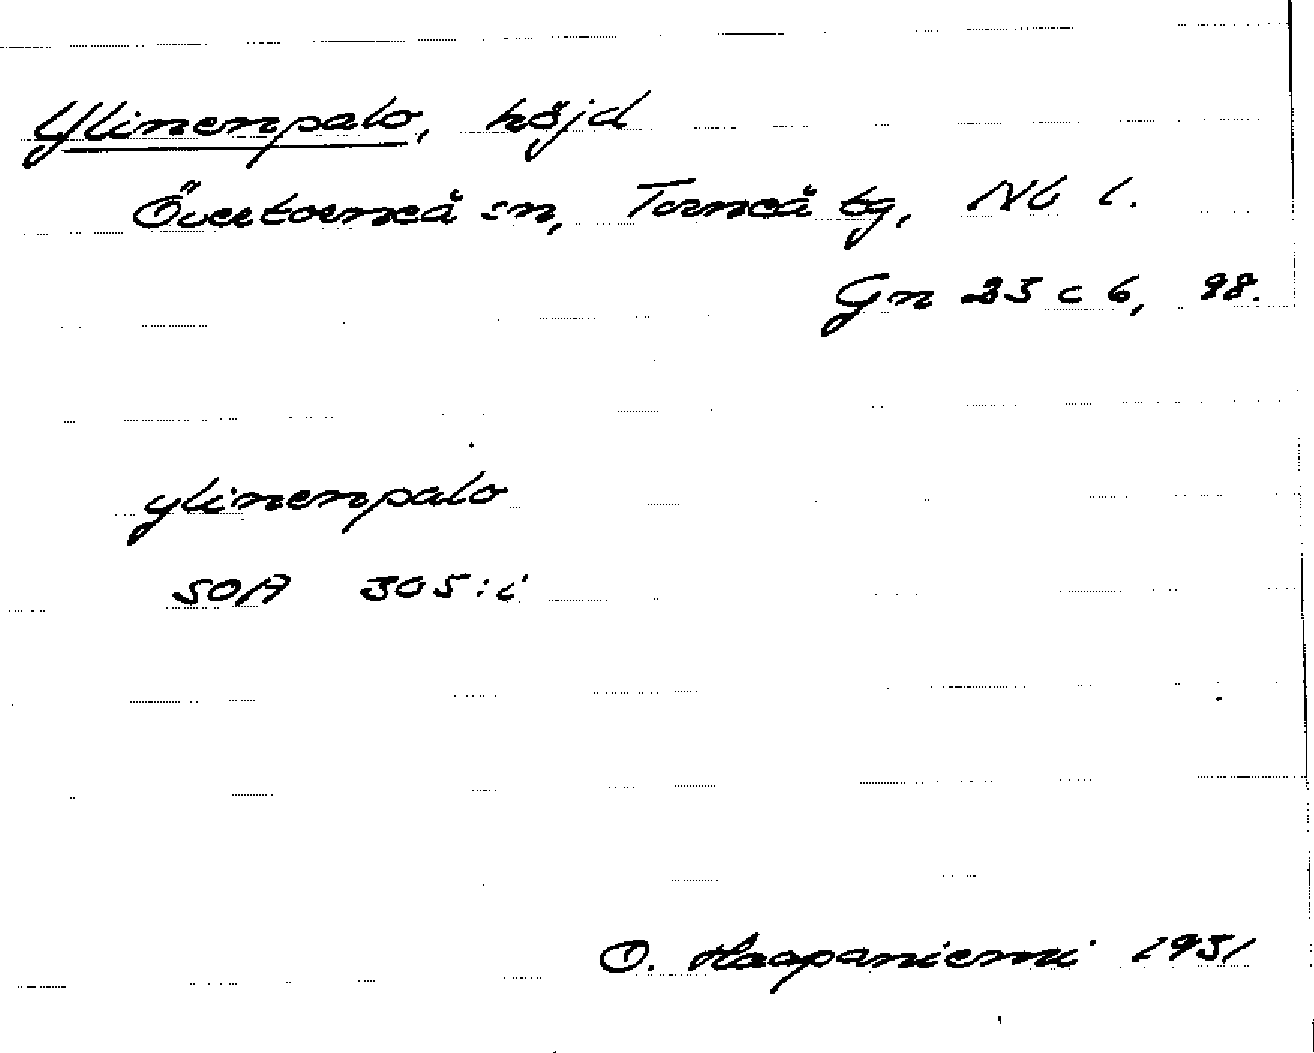 Ylinenpalo, höjd
Övertorneå sn, Torneå tg, Nb l.
Gn 25 c 6, 98.
ylinenpalo
SOA 305:i
O. Haapaniemi 1931